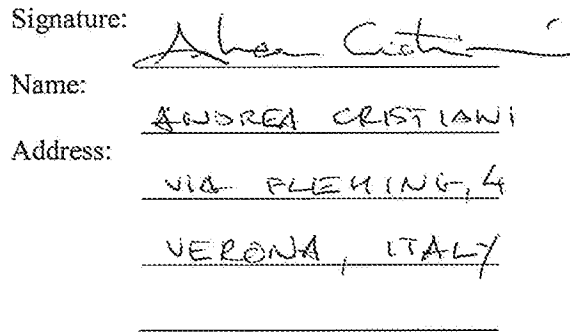 Signature: Andrea Cristiani
Name:
ANDREA CRISTIANI
Address:
VIA FLEMING, 4
VERONA, ITALY